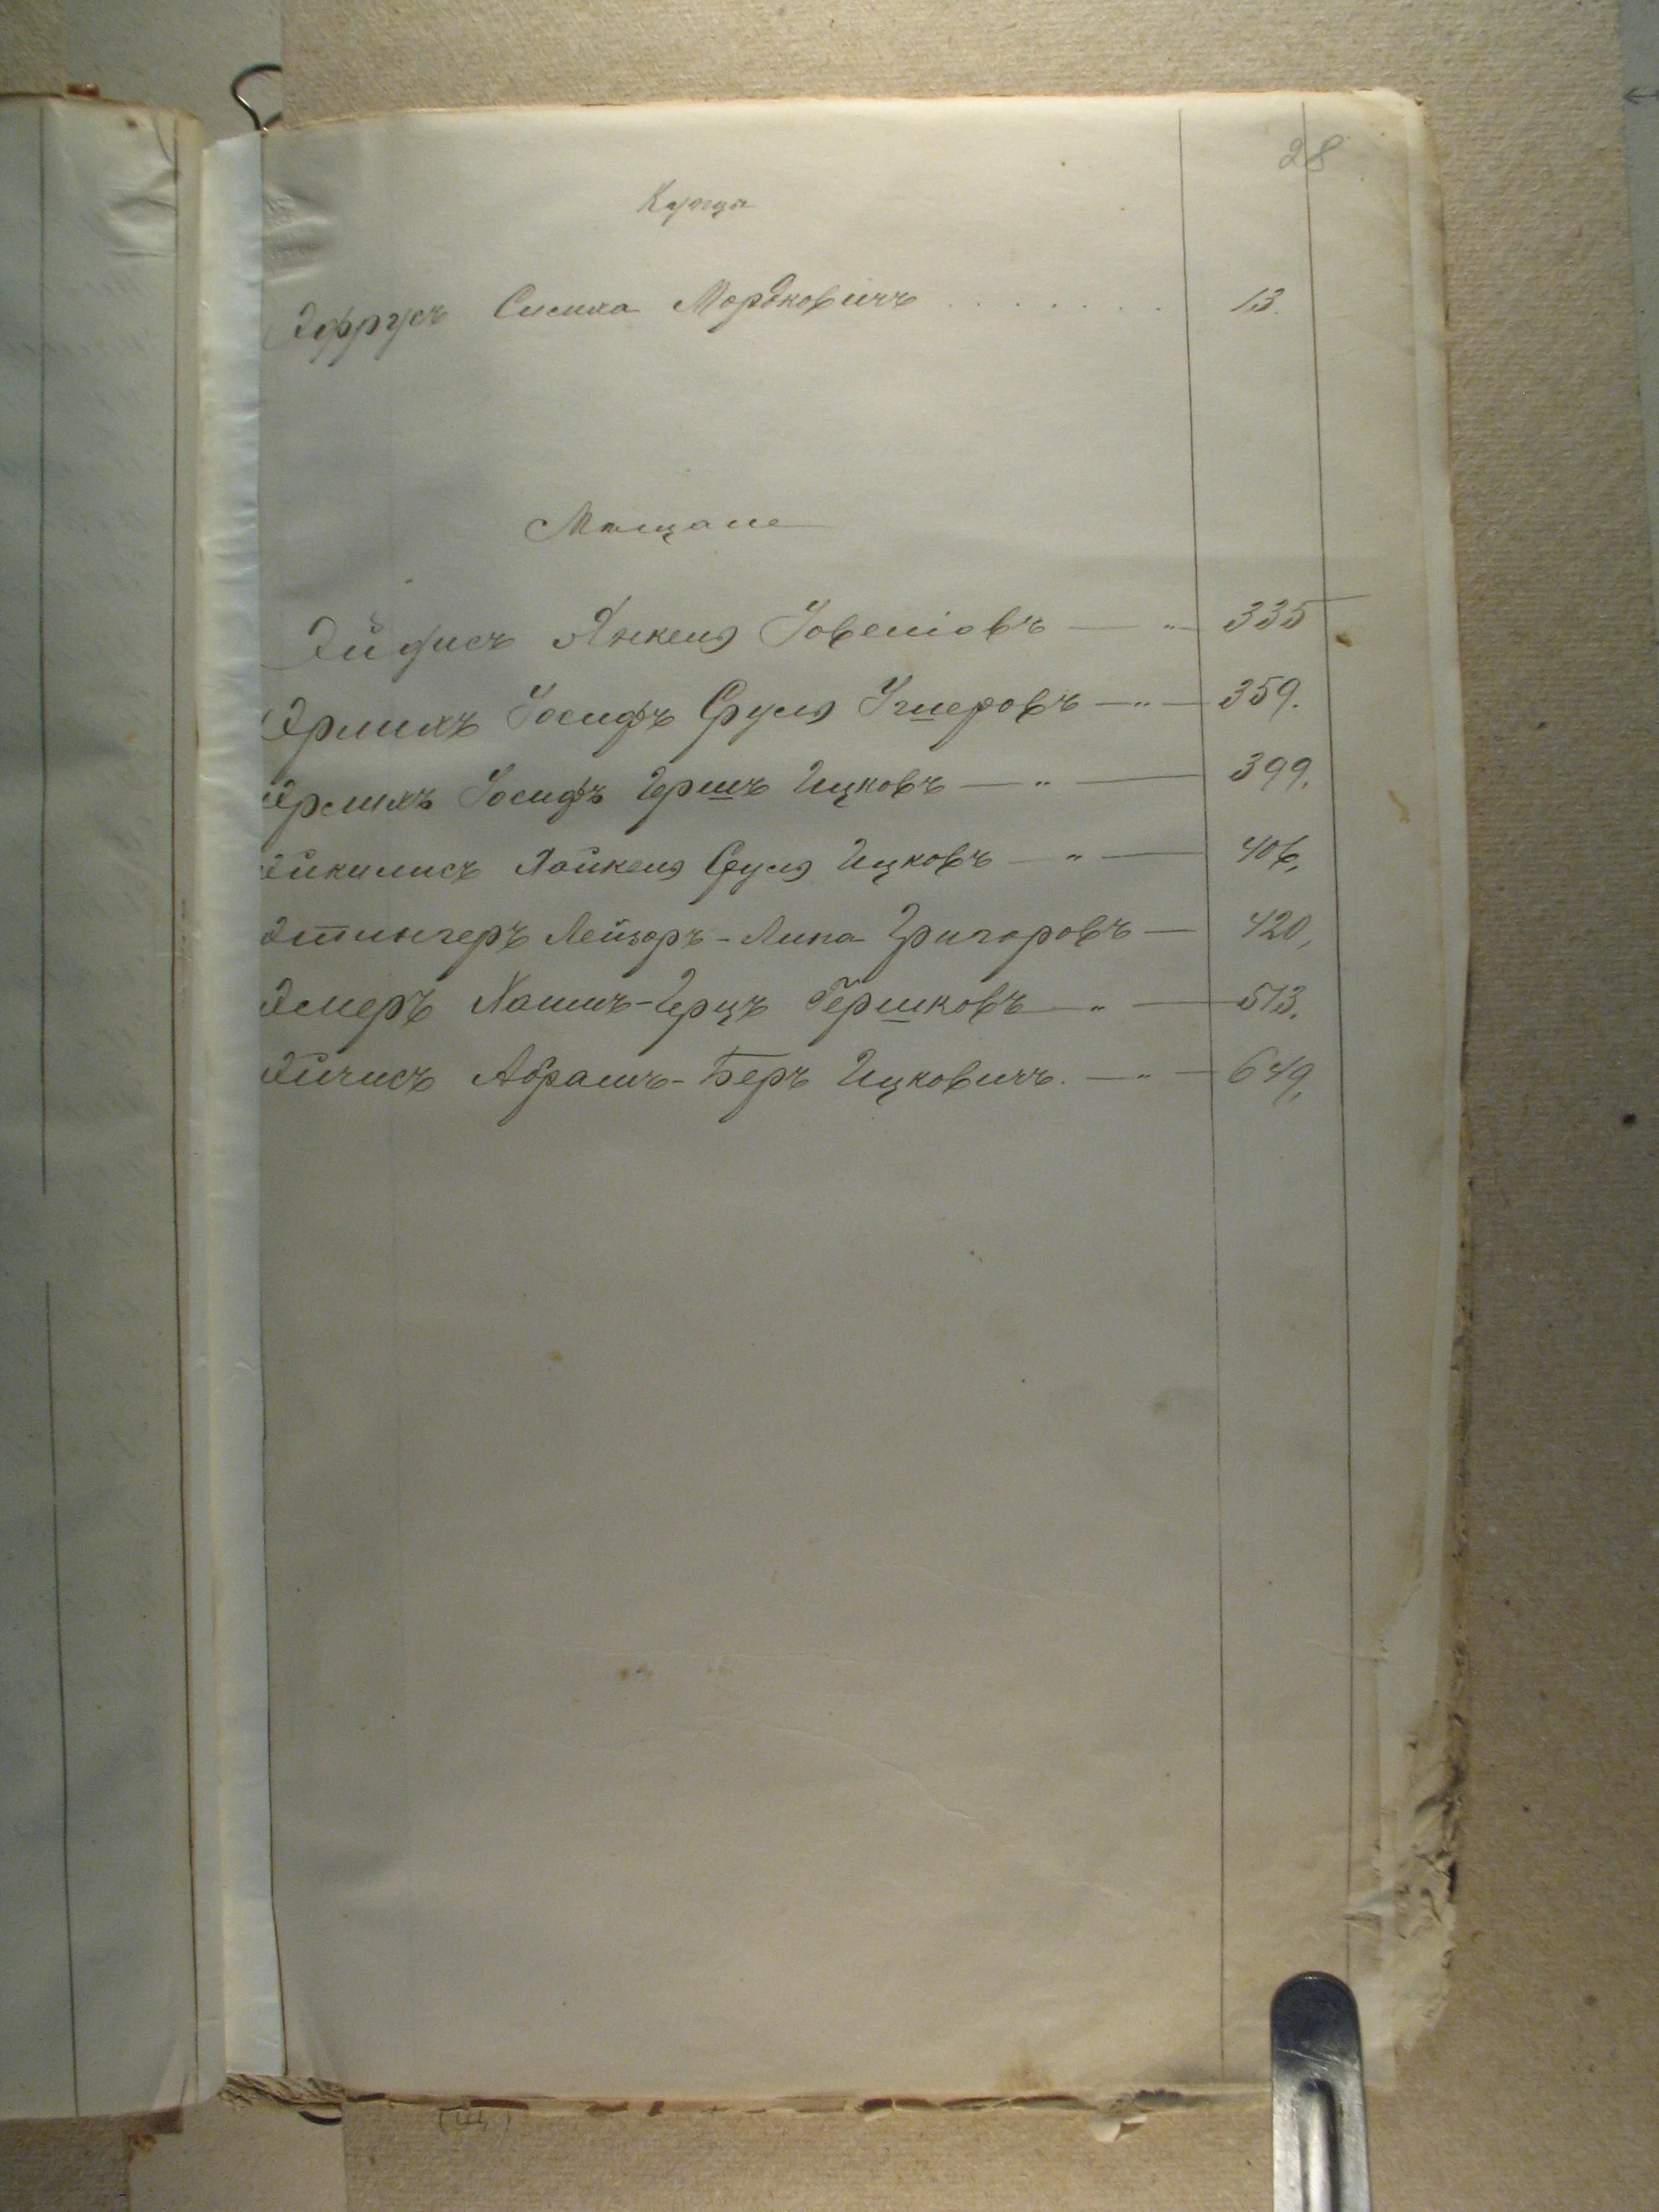 28
Купцы
Эфрусъ Симха Мордковичъ . . . . . . . . 13.
Мѣщане
Эйдисъ Янкель Іовеліовъ — " — 335
Эрлихъ Іосифъ Сруль — " — 359.
Эрлихъ Іосифъ Гершъ Ицковъ — " — 399.
Сруль Ицковъ — " — 406,
Этингеръ Лейзоръ-Липа Григоровъ — 420,
Элмеръ Хаимъ-Герцъ Гершковъ — " — 513.
Абрамъ-Беръ Ицковичъ. — " — 649,